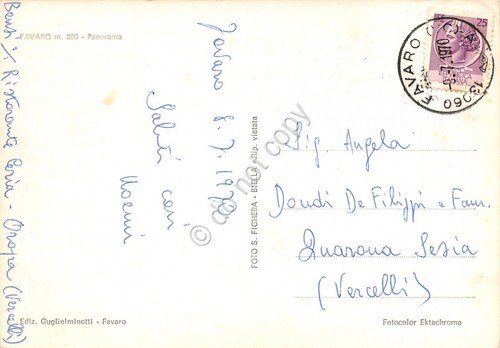 FAVARO m. 880 - Panorama
Favaro 8.7.1970
Saluti cari
Noemi
Benti % Ristorante Coria - Oropa (Vercelli)
Ediz. Guglielminotti - Favaro
FOTO S. FIGHERA - BIELLA - Rip. vietata
do not copy
25
13060 FAVARO
Sig. Angela
Dondi De Filippi e Fam.
Quarona Sesia
(Vercelli)
Fotocolor Ektachrome